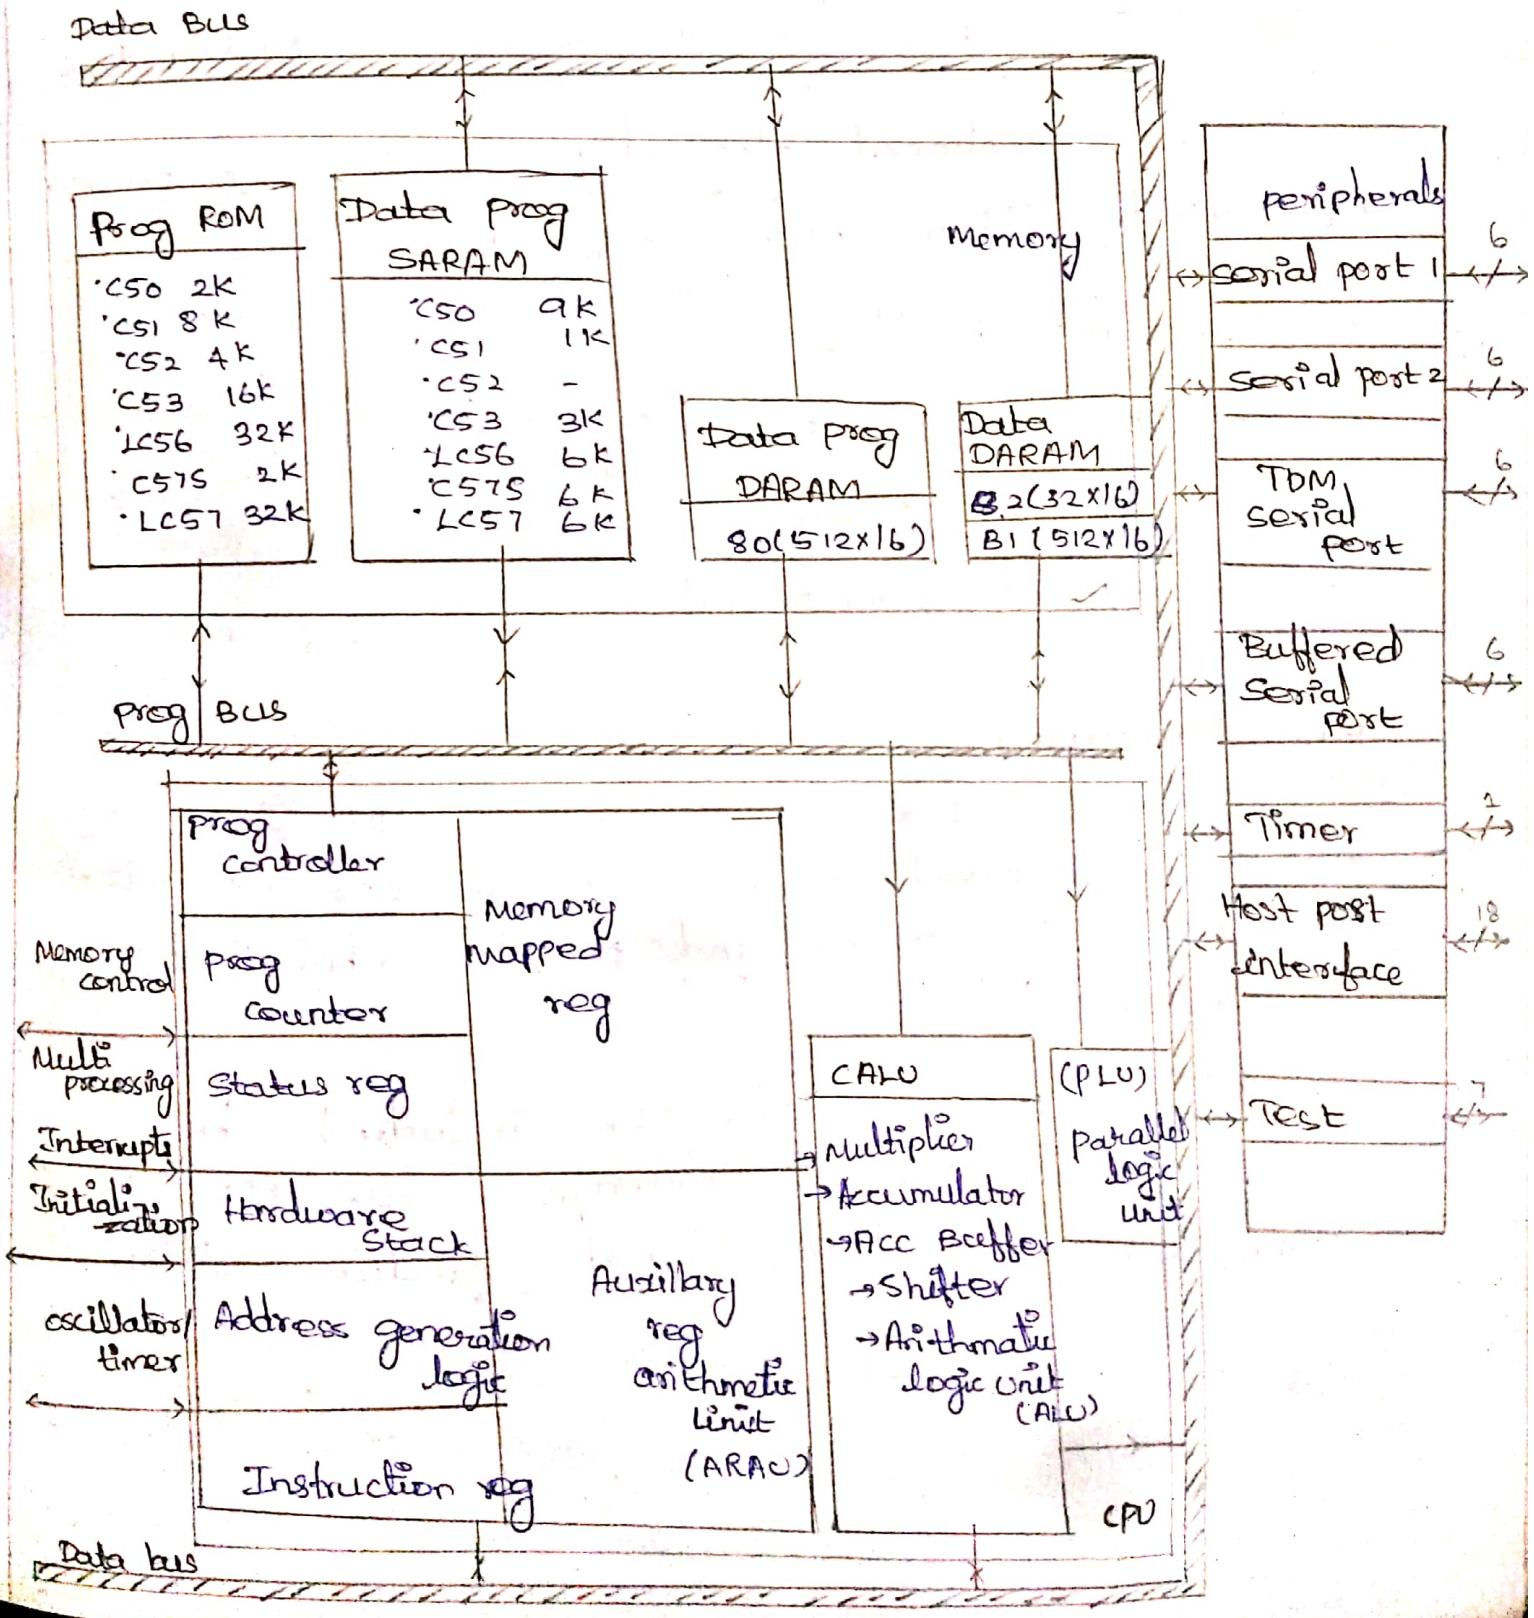 Data Bus
Prog ROM
'C50 2K
'C51 8K
'C52 4K
'C53 16K
'LC56 32K
'C57S 2K
'LC57 32K
Data prog
SARAM
'C50 9K
'C51 1K
'C52 -
'C53 3K
'LC56 6K
'C57S 6K
'LC57 6K
Memory
Data prog
DARAM
80(512x16)
Data
DARAM
B2(32x16)
B1(512x16)
Prog Bus
peripherals
serial port 1
6
serial port 2
6
TDM
serial
port
6
Buffered
Serial
port
6
Timer
1
Host post
interface
18
Test
7
prog
controller
prog
counter
Status reg
Hardware
Stack
Address generation
logic
Instruction reg
Memory
mapped
reg
Auxillary
reg
arithmetic
Unit
(ARAU)
Memory
control
Multi
processing
Interrupts
Initiali-
zation
oscillator/
timer
CALU
→Multiplier
→Accumulator
→Acc Buffer
→Shifter
→Arithmatic
logic unit
(ALU)
(PLU)
parallel
logic
unit
CPU
Data bus